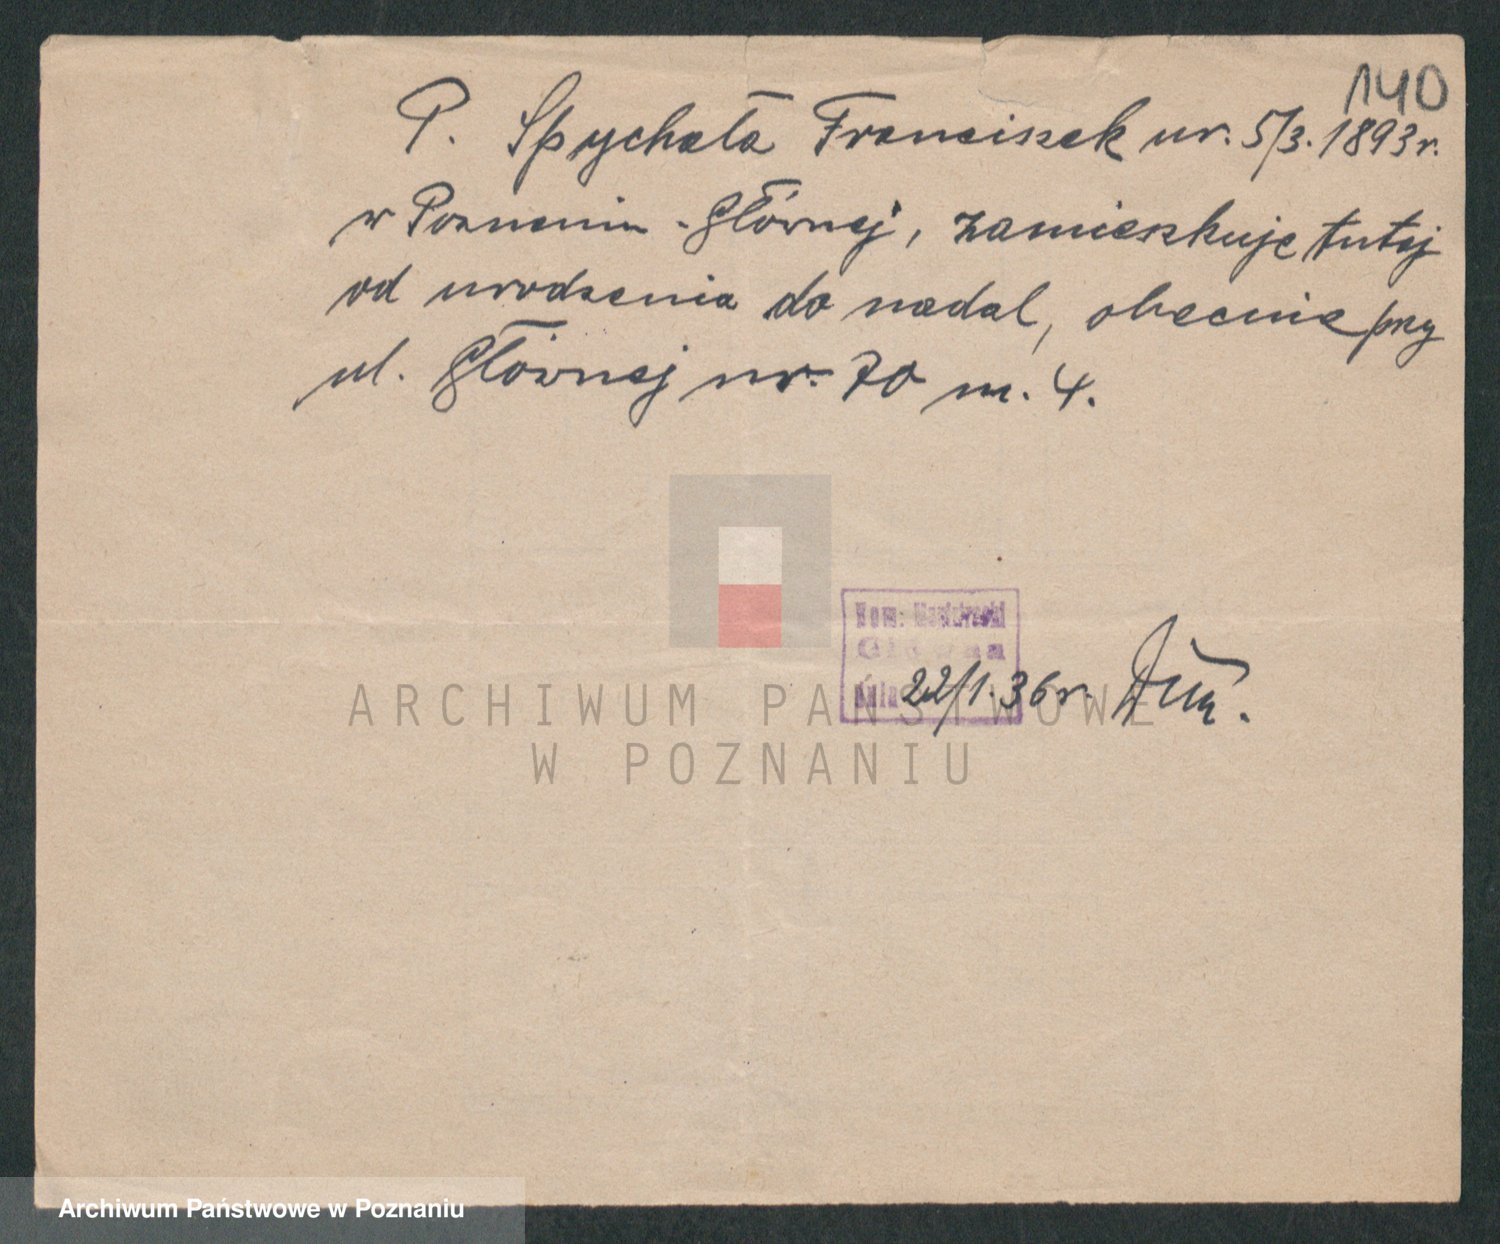 140
P. Spychała Franciszek ur. 5/3. 1893 r.
w Poznaniu - Głównej, zamieszkuje tutaj
od urodzenia do nadal, obecnie przy
ul. Głównej nr. 70 m. 4.
Główna
22/1. 36 r.
ARCHIWUM PAŃSTWOWE
W POZNANIU
Archiwum Państwowe w Poznaniu